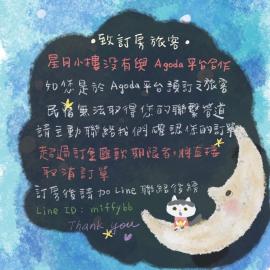 •致訂房旅客•
星月小樓沒有與Agoda平台合作
如您是於Agoda平台預訂之旅客
民宿無法取得您的聯繫管道
請主動聯絡我們確認您的訂單
超過訂金匯款期限者,將直接
取消訂單
訂房後請加Line聯絡後續
Line ID: miffybb
Thank you